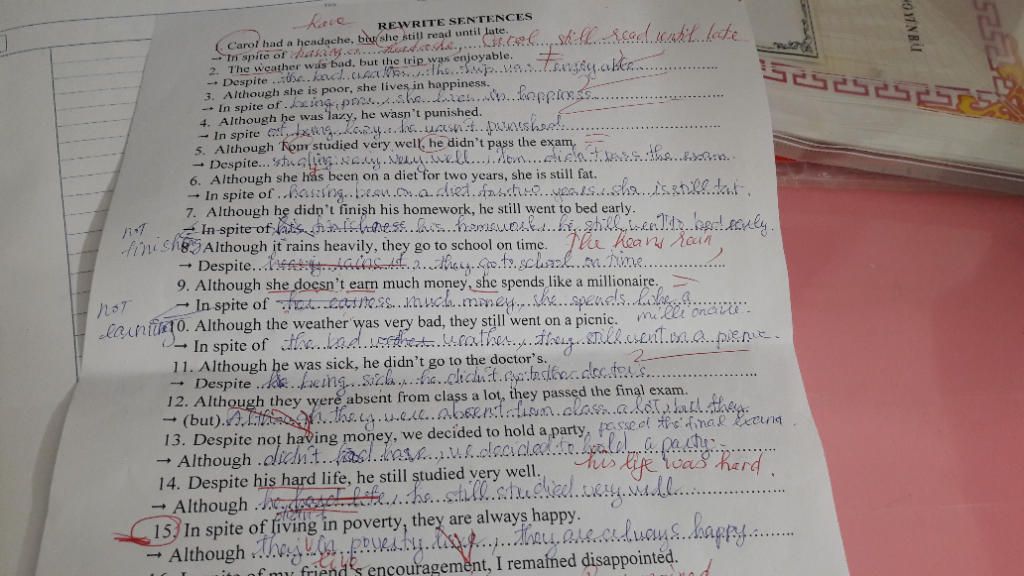 have
REWRITE SENTENCES
1. Carol had a headache, but she still read until late.
→ In spite of having a headache, Carol still read until late
2. The weather was bad, but the trip was enjoyable.
→ Despite the bad weather, the trip was enjoyable
3. Although she is poor, she lives in happiness.
→ In spite of being poor, she lives in happiness
4. Although he was lazy, he wasn't punished.
→ In spite of being lazy, he wasn't punished
5. Although Tom studied very well, he didn't pass the exam
→ Despite studying very well, Tom didn't pass the exam.
6. Although she has been on a diet for two years, she is still fat.
→ In spite of having been on a diet for two years, she is still fat.
7. Although he didn't finish his homework, he still went to bed early.
→ In spite of his homework, he still went to bed early.
not
8. Although it rains heavily, they go to school on time. The heavy rain,
→ Despite heavy rains it, they go to school on time
9. Although she doesn't earn much money, she spends like a millionaire.
not
→ In spite of much money, she spends like a
millionaire.
10. Although the weather was very bad, they still went on a picnic.
→ In spite of the bad weather, they still went on a picnic.
11. Although he was sick, he didn't go to the doctor's.
→ Despite being sick, he didn't go to the doctor's
12. Although they were absent from class a lot, they passed the final exam.
→ (but) Although they were absent from class a lot, but they
passed the final exam.
13. Despite not having money, we decided to hold a party,
→ Although didn't have, we decided to hold a party.
his life was hard.
14. Despite his hard life, he still studied very well.
→ Although he hard life, he still studied very well
15. In spite of living in poverty, they are always happy.
→ Although they poverty, they are always happy
live
of my friend's encouragement, I remained disappointed.